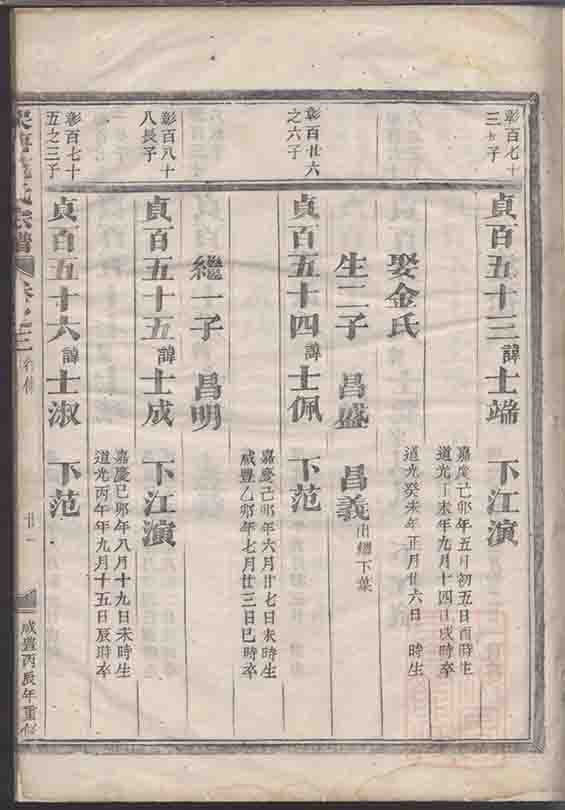 彰百七十
三 子
貞百五十三 諱 士端 下江演
嘉慶己卯年五月初五日酉時生
道光丁未年九月十四日戌時卒
娶金氏
道光癸未年正月廿六日 時生
生二子 昌盛 昌義 出繼下葉
彰百廿六
之六子
貞百五十四 諱 士佩 下范
嘉慶己卯年六月廿七日未時生
咸豐乙卯年七月廿三日巳時卒
繼一子 昌明
彰百八十
八長子
貞百五十五 諱 士成 下江演
嘉慶己卯年八月十九日未時生
道光丙午年九月十五日辰時卒
彰百七十
五之三子
貞百五十六 諱 士淑 下范
氏宗譜 卷之三
廿一
咸豐丙辰年重修